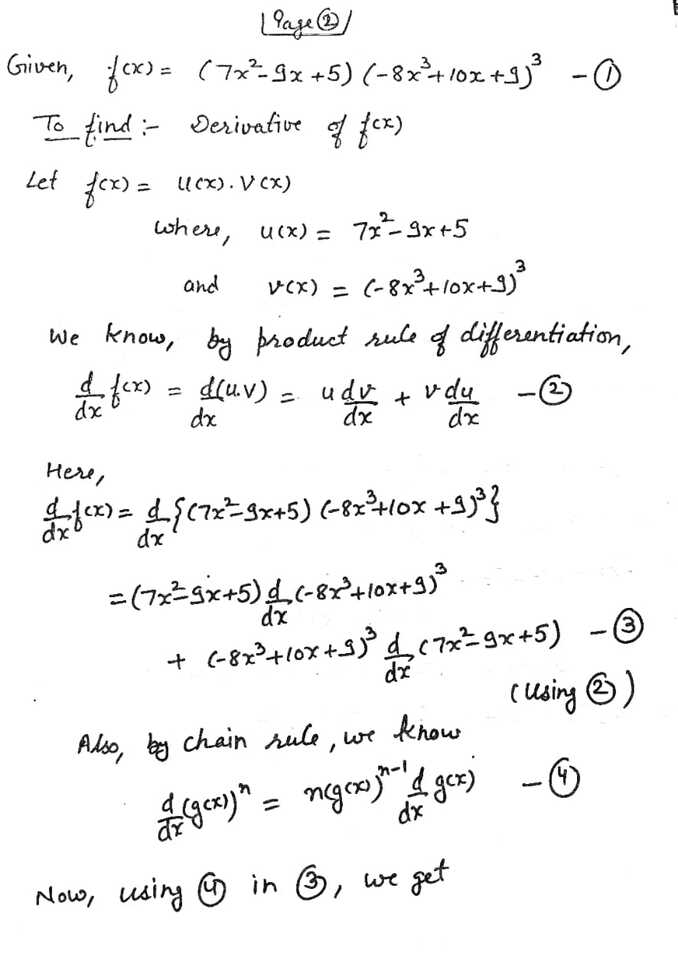 Page ②
Given, f(x) = (7x²-9x+5) (-8x³+10x+9)³ - ①
To find :- Derivative of f(x)
Let f(x) = u(x).v(x)
where, u(x) = 7x²-9x+5
and v(x) = (-8x³+10x+9)³
We know, by product rule of differentiation,
d/dx f(x) = d(u.v)/dx = u dv/dx + v du/dx - ②
Here,
d/dx f(x) = d/dx {(7x²-9x+5) (-8x³+10x+9)³}
= (7x²-9x+5) d/dx (-8x³+10x+9)³
+ (-8x³+10x+9)³ d/dx (7x²-9x+5) - ③
(Using ②)
Also, by chain rule, we know
d/dx (g(x))ⁿ = n(g(x))ⁿ⁻¹ d/dx g(x) - ④
Now, using ④ in ③, we get